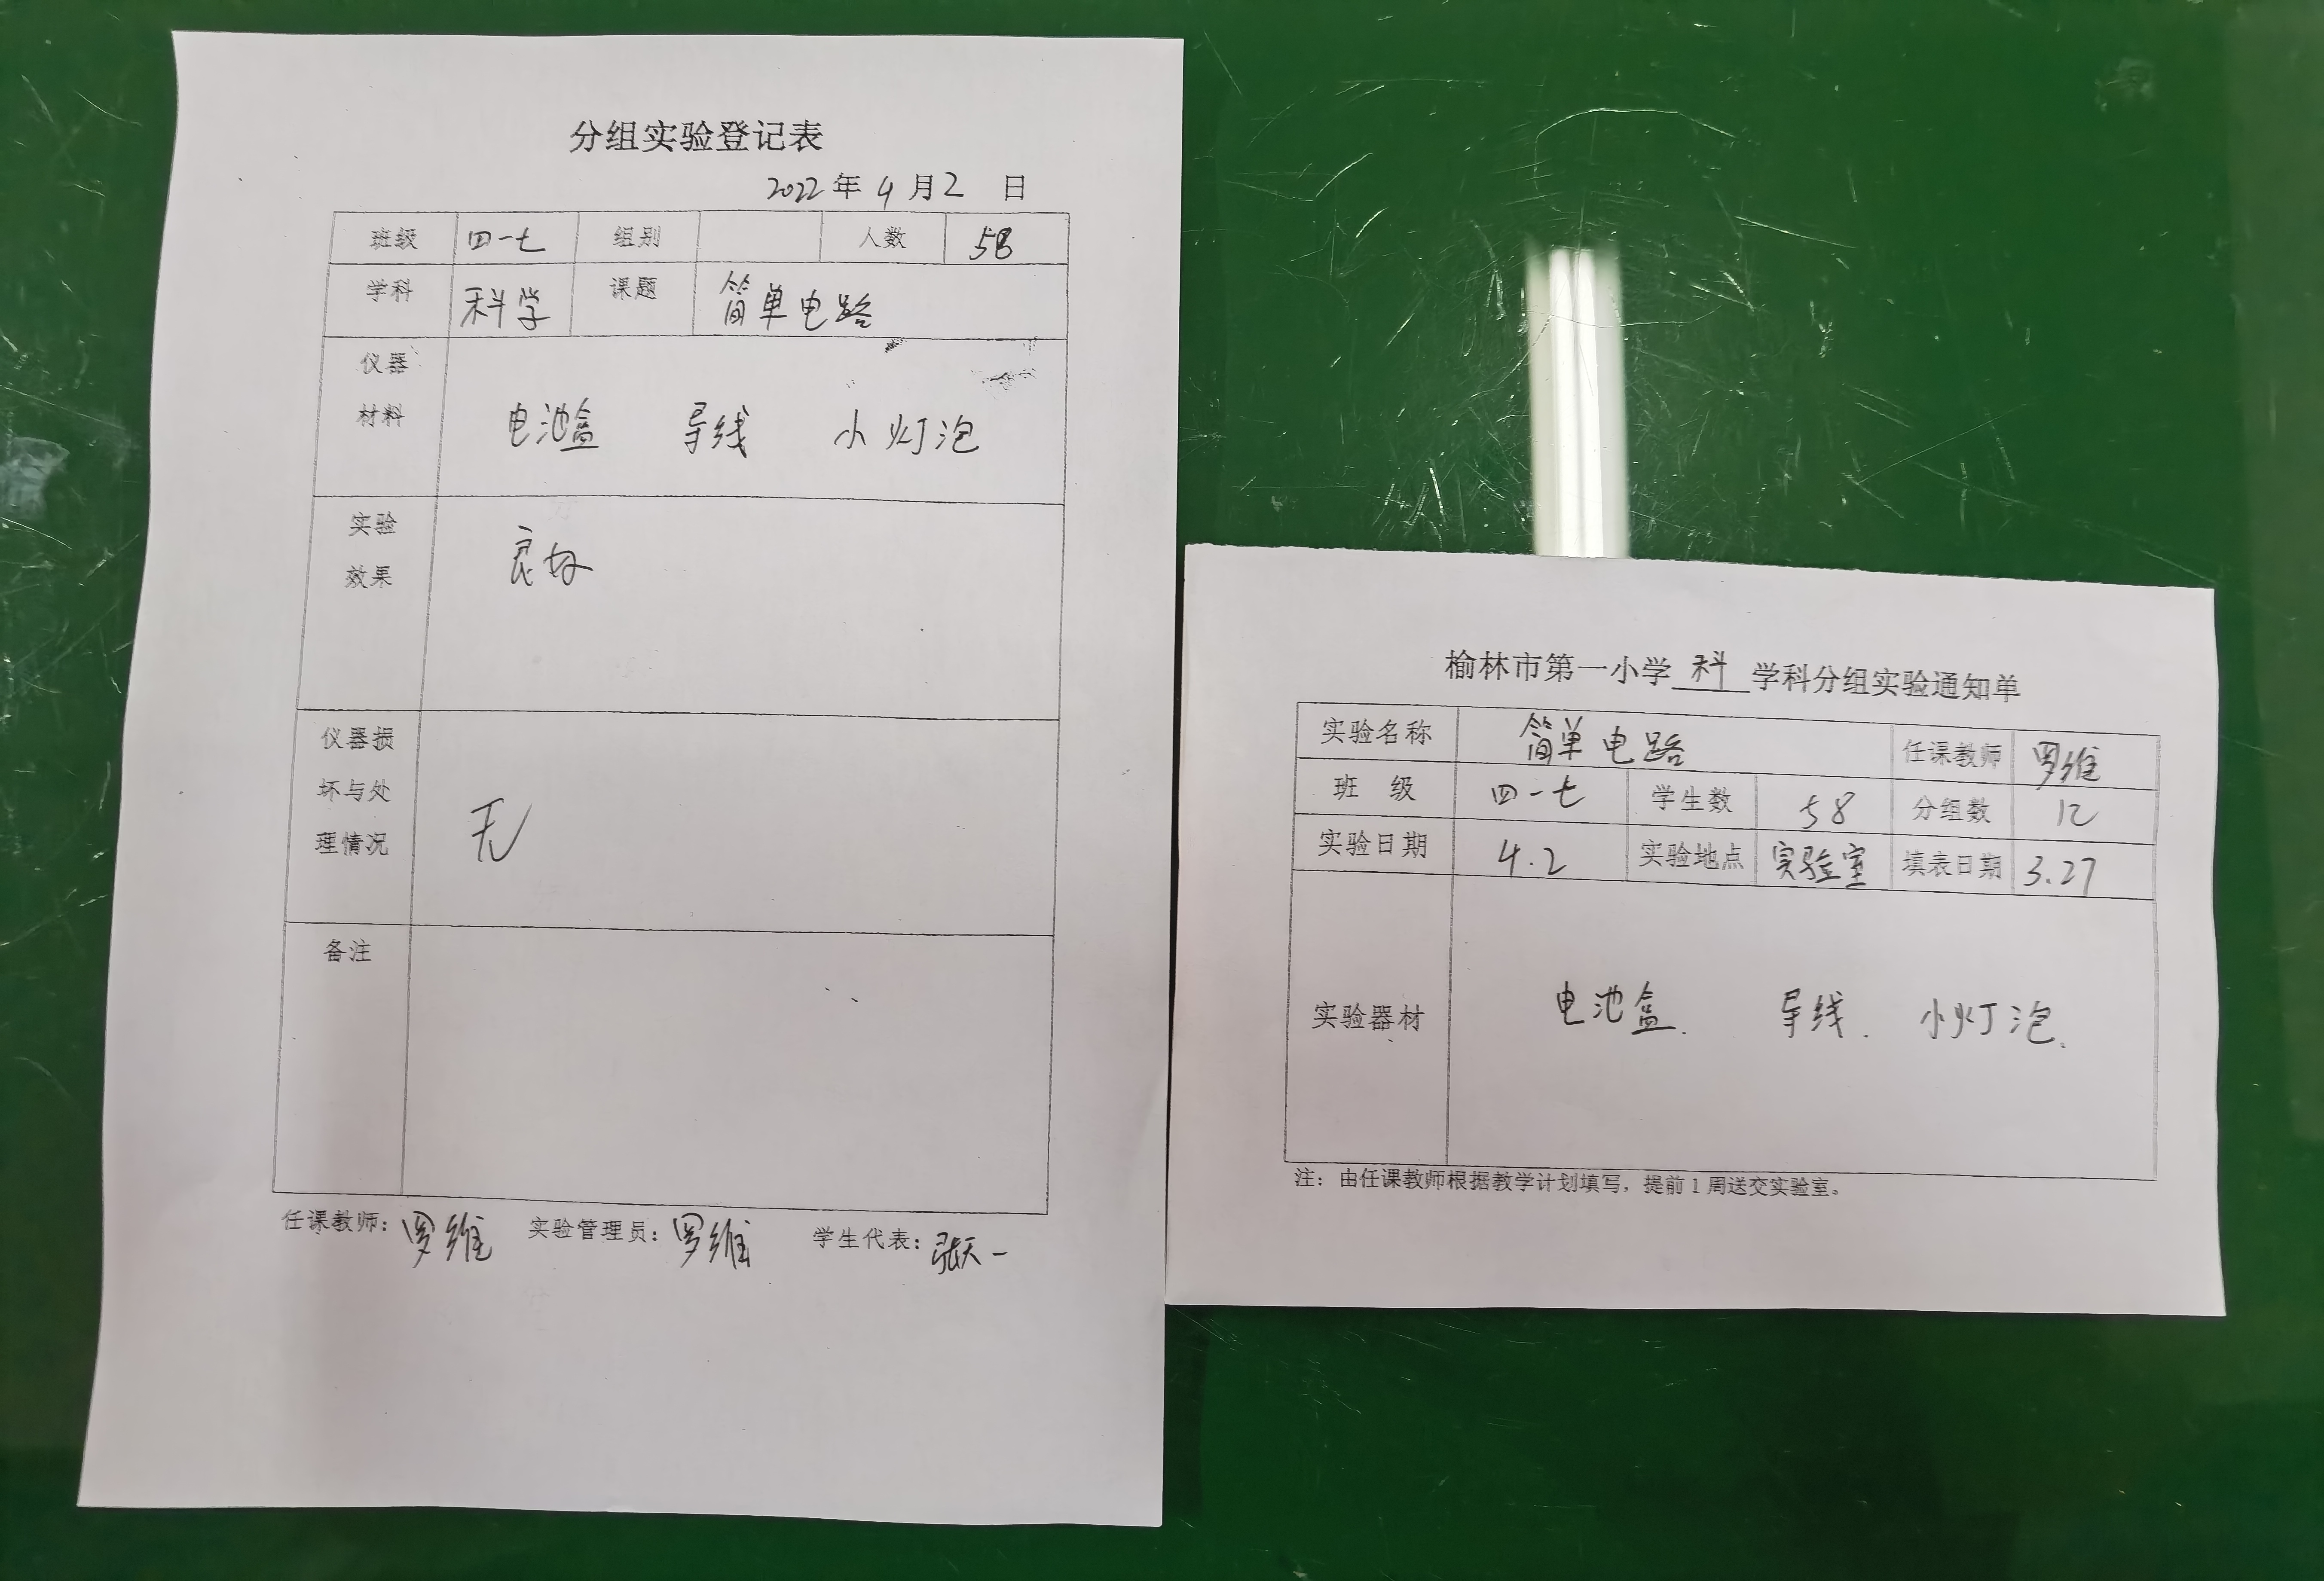 分组实验登记表
2022年4月2日
班级 四-七 组别 人数 58
学科 科学 课题 简单电路
仪器
材料
电池盒 导线 小灯泡
实验
效果
良好
仪器损
坏与处
理情况
无
备注
任课教师：罗维 实验管理员：罗维 学生代表：张天一
榆林市第一小学 科 学科分组实验通知单
实验名称 简单电路 任课教师 罗维
班 级 四-七 学生数 58 分组数 12
实验日期 4.2 实验地点 实验室 填表日期 3.27
实验器材 电池盒. 导线. 小灯泡.
注：由任课教师根据教学计划填写，提前1周送交实验室。